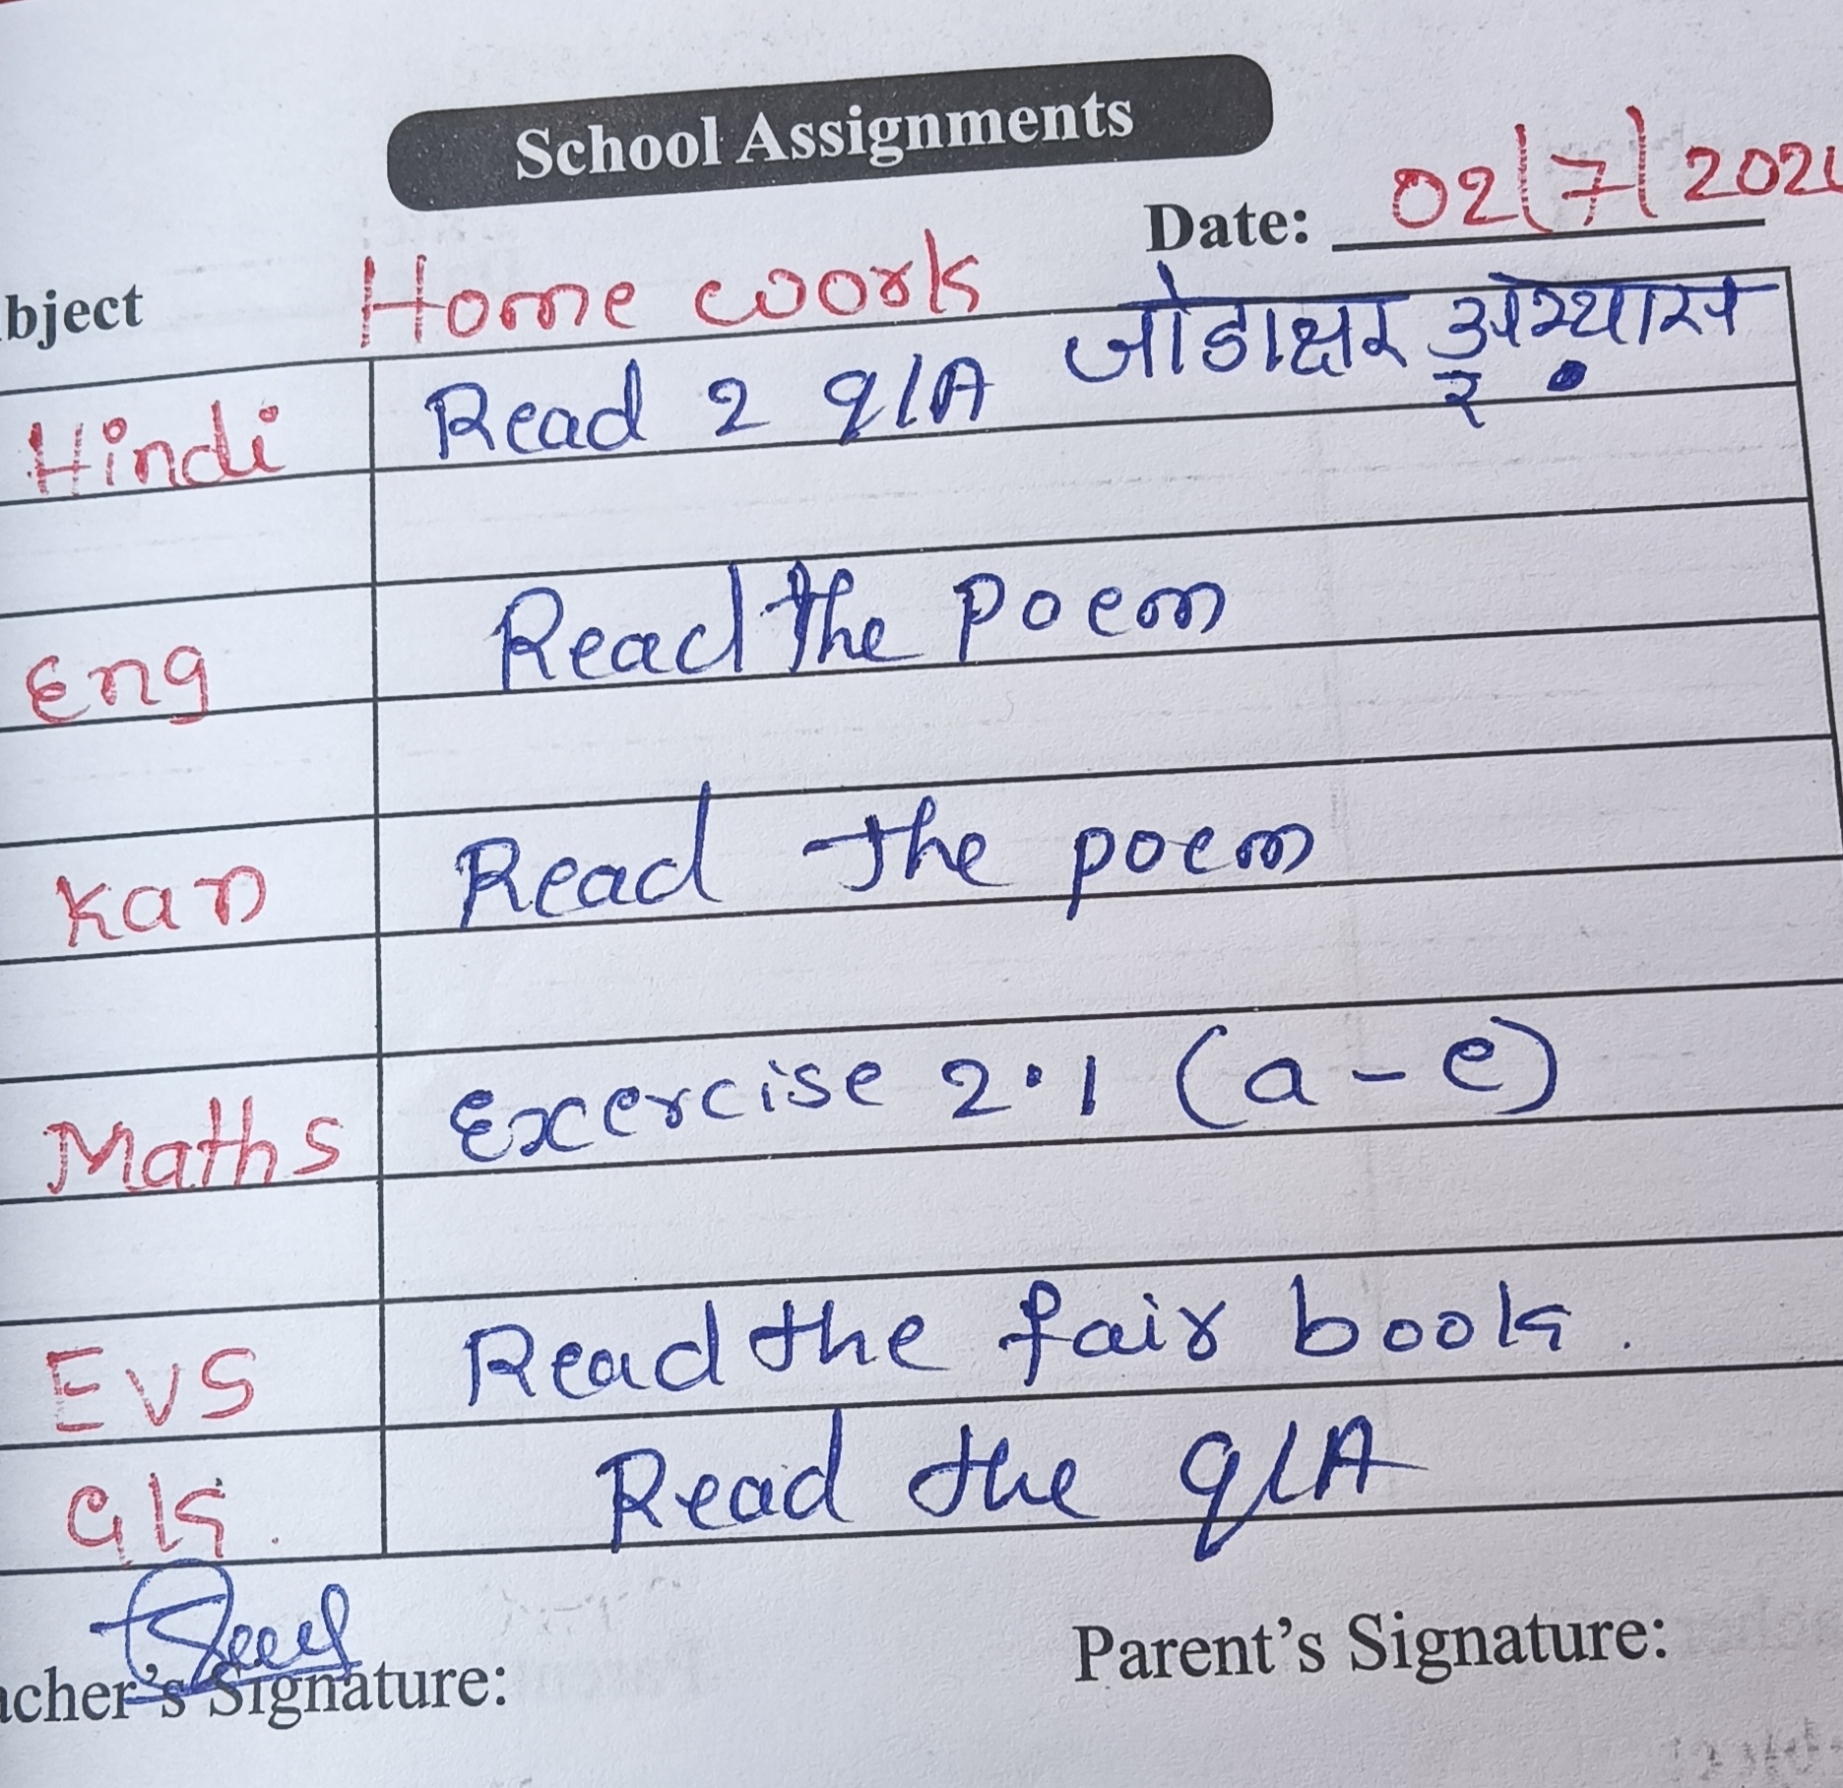 School Assignments
Date: 02/7/202
bject Home work
Hindi Read 2 q/A जोडाक्षर अभ्यास
र
Eng Read the Poem
Kan Read the poem
Maths Exercise 2.1 (a-e)
EVS Read the fair book.
GK. Read the q/A
acher's Signature: Parent's Signature: